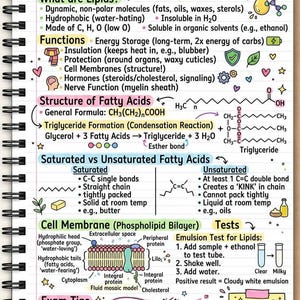 What are Lipids?
• Dynamic, non-polar molecules (fats, oils, waxes, sterols)
• Hydrophobic (water-hating) • Insoluble in H₂O
• Made of C, H, O (low O) • Soluble in organic solvents (e.g., ethanol)
Functions • Energy Storage (long-term, 2x energy of carbs)
Insulation (keeps heat in, e.g., blubber)
Protection (around organs, waxy cuticles)
Cell Membranes (structure!)
Hormones (steroids/cholesterol, signaling)
Nerve Function (myelin sheath)
Structure of Fatty Acids
General Formula: CH₃(CH₂)ₙCOOH
Triglyceride Formation (Condensation Reaction)
Glycerol + 3 Fatty Acids → Triglyceride + 3 H₂O
Esther bond
Triglyceride
Saturated vs Unsaturated Fatty Acids
Saturated
• C-C single bonds
• Straight chain
• tightly packed
• Solid at room temp
• e.g., butter
Unsaturated
• At least 1 C=C double bond
• Creates a 'KINK' in chain
• Cannot pack tightly
• Liquid at room temp
• e.g., oils
Cell Membrane (Phospholipid Bilayer)
Hydrophilic head (phosphate group, 'water-loving')
Hydrophobic tails (fatty acids, 'water-fearing')
Extracellular space
Peripheral protein
Integral protein
Integral protein
Cytoplasm
Fluid mosaic model
Tests
Emulsion Test for Lipids:
1. Add sample + ethanol to test tube.
2. Shake well.
3. Add water.
Positive result = Cloudy white emulsion
Clear
Milky
Exam Tips